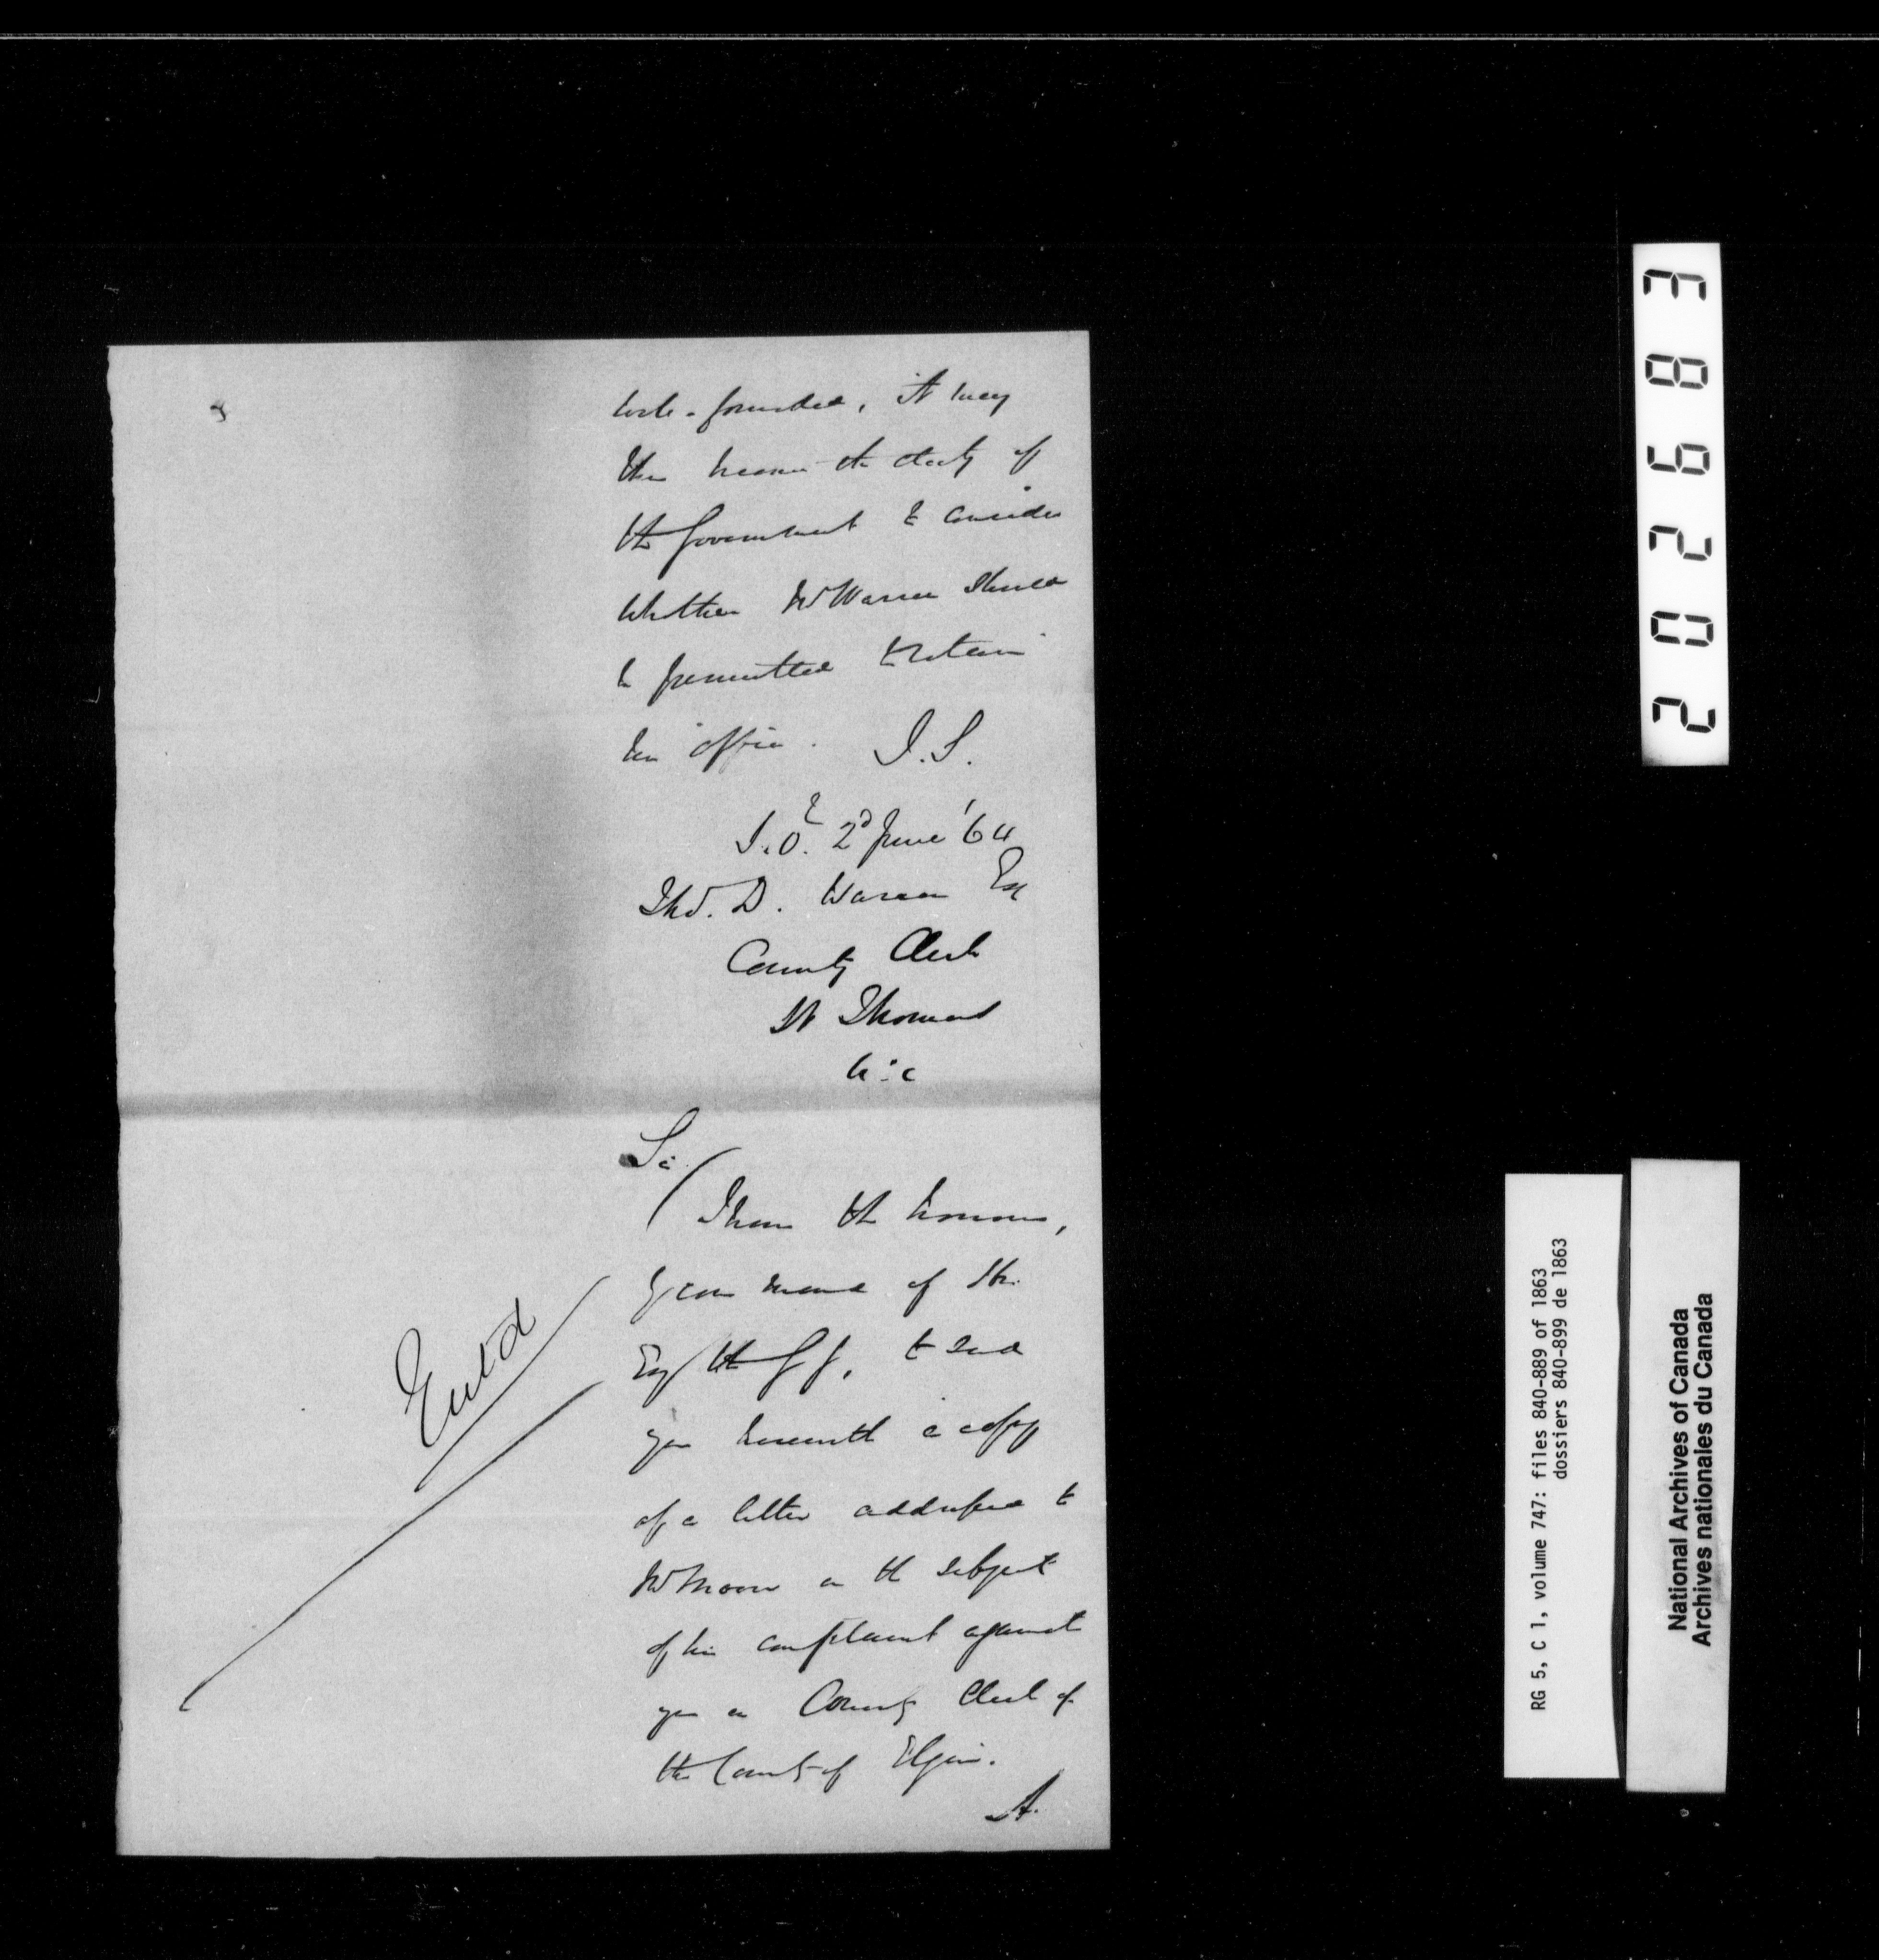 well-founded, it may
then become the duty of
the Government to consider
whether Mr Warren should
be permitted to retain
his office. I.S.
S.O. 2d June '64
Thos. D. Warren Esq
County Clerk
St Thomas
U.C
Sir
I have the honour,
by command of His
Exy the G G, to send
you herewith a copy
of a letter addressed to
Mr Moore on the subject
of his complaint against
you as County Clerk of
the County of Elgin.
A.
Entd
202683
RG 5, C 1, volume 747: files 840-889 of 1863
dossiers 840-899 de 1863
National Archives of Canada
Archives nationales du Canada